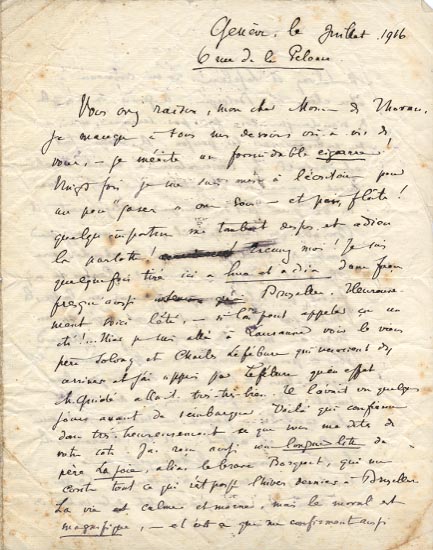 Genève, le Juillet 1916
6 rue de la Pelouse
Vous avez raison, mon cher Monsieur de
Je manque à tous mes devoirs vis à vis de
vous, – je mérite un formidable
Vingt fois je me suis mis à l'écritoire pour
un peu "jaser" avec vous – et passe, flûte!
quelque importun me tombait dessus et adieu
la parlotte! Excusez moi! Je suis
quelquefois tiré ici à hue et à dia d'une façon
presque aussi Bruxelles. Heureuse-
ment voici l'été, – si l'on peut appeler ça un
été!... Hier je suis allé à Lausanne voir le vieux
père Solvay et Charles Lefébure qui venaient d'y
arriver et j'ai appris par Lefébure qu'en effet
M. allait très très bien. Il l'avait vu quelques
jours avant de s'embarquer. Voilà qui confirme
donc très heureusement ce que vous me dites de
votre côté. J'ai reçu aussi une longue lettre du
père La Joie, alias le brave Bosquet, qui me
conte tout ce qui s'est passé l'hiver dernier à Bruxelles
La vie est calme et morne, mais le moral est
magnifique, – et c'est ce que me confirment aussi